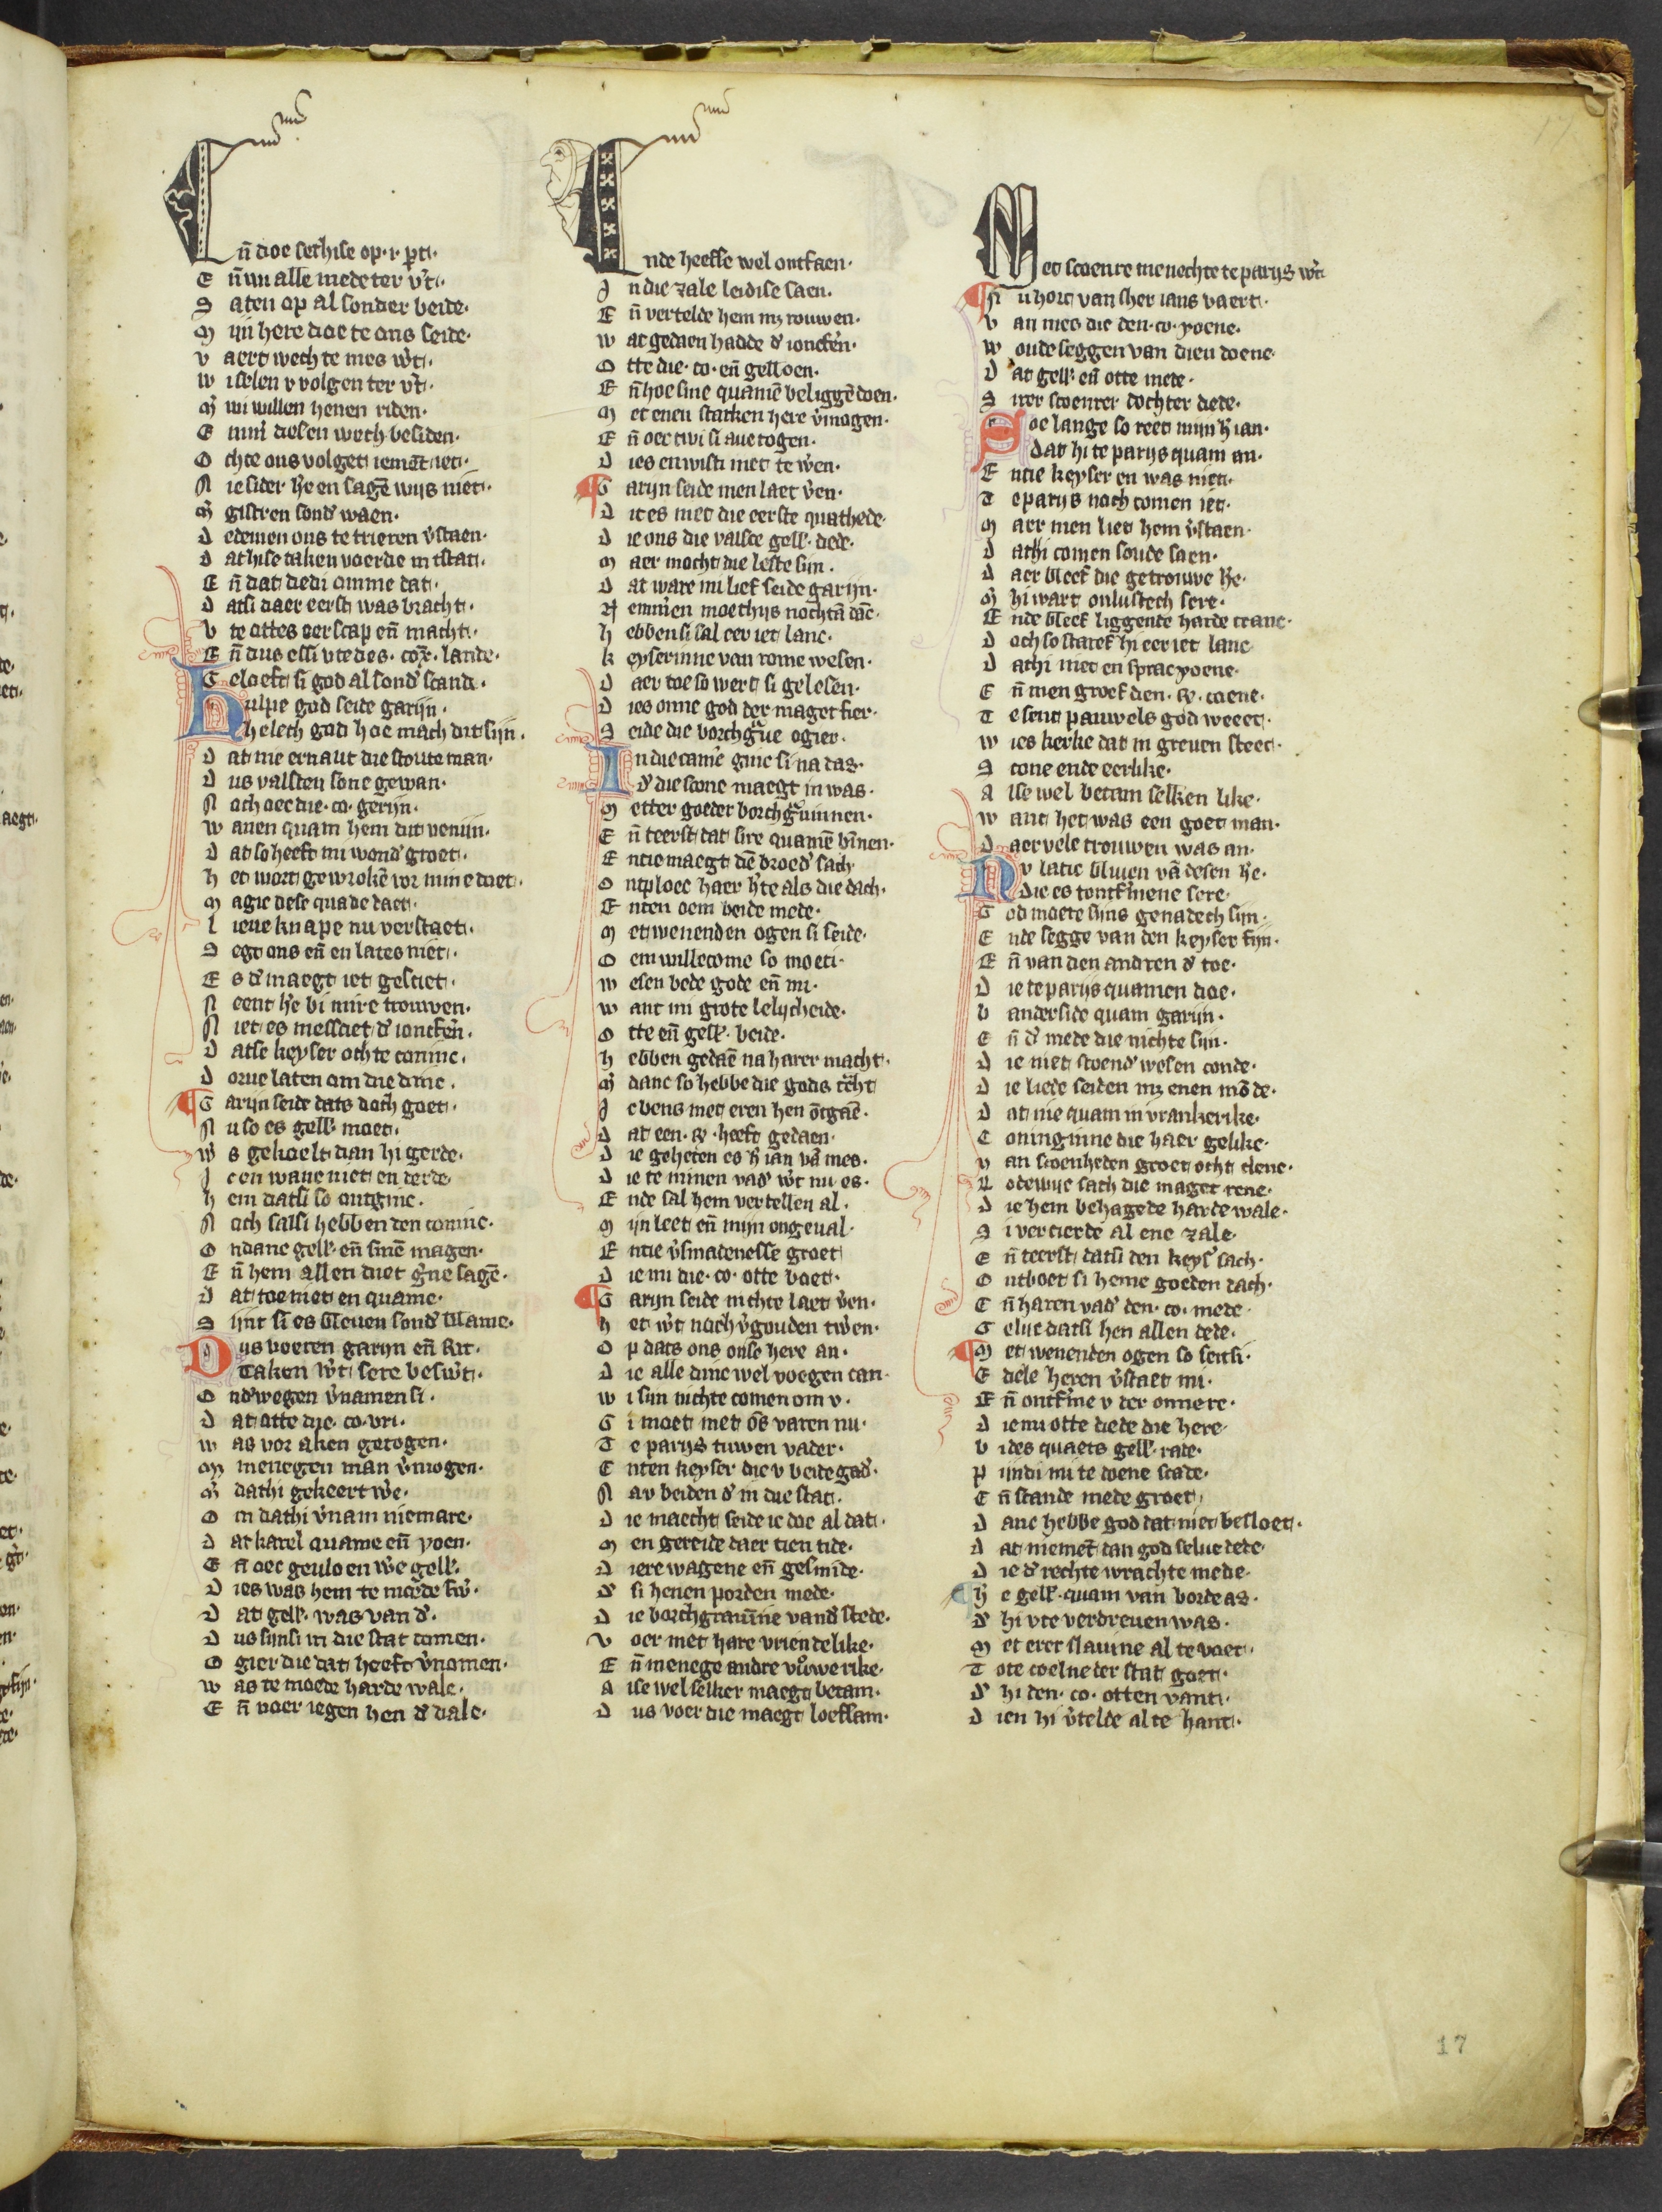 En̄ doe sethise op .i. pert.
En̄ wi alle mede ter v̉t.
Saten op al sonder beide.
Mijn here doe te ons seide.
Vaert wech te mes w̉t.
Wiselen v volgen ter v̉t.
M̉ wi willen henen riden.
Emmi desen wech besiden.
Ochte ons volget iemēt iet.
Nie sider h̉e en sagē wijs niet.
M̉ gistren sond̉ waen.
Dedemen ons te trieren v̉staen.
Dathise daken voerde in tstat.
En̄ dat dedi omme dat.
Datsi daer eerst was bracht.
Vte ottes eerscap en̄ macht.
En̄ dus essi vte des. con̄x. lande.
Geloeft si god al sond̉ scande.
Hulpe god seide garijn.
Helech god hoe mach dit sijn.
Dat nie ernaut die stoute man.
Dus valsten sone gewan.
Noch oec die. co. gerijn.
Wanen quam hem dit venijn.
Dat so heeft mi wond̉ groet.
Het wort gewrokē vor mine doet.
Magic dese quade daet.
Lieue knape nu verstaet.
Segt ons en̄ en lates niet.
Es d̉ maegt iet gesciet.
Neent h̉e bi mire trouwen.
Niet es messciet d̉ ioncfrn̄.
Datse keyser ochte coninc.
Dorue laten om die dinc.
Garijn seide dats doch goet.
Nu so es gell̉. moet.
W̉s gekoelt dan hi gerde.
Icen wane niet en derde
Hem datsi so ontginc.
Noch salsi hebben den coninc.
Ondanc gell̉. en̄ sinē magen.
En̄ hem allen diet g̉ne sagē.
Dat toe niet en quame.
Sijnt si es bleuen sond̉ blame.
Dus voeren garijn en̄ Rit.
Taken w̉t sere besw̉t.
Ond̉wegen v̉namen si.
Dat otte die. co. vri.
Was vor aken getogen.
Mz menegen man v̉mogen.
M̉ dathi gekeert w̉e.
Om dathi v̉nam niemare.
Dat karel quame en̄ yoen.
En̄ oec geuloen w̉e gell̉.
Dies was hem te moede sw̉.
Dat gell̉. was van d̉.
Dus sijnsi in die stat comen.
Ogier die dat heeft v̉nomen.
Was te moede harde wale.
En̄ voer iegen hen d̉ dale.
Ende heefse wel ontfaen.
In die zale leidise saen.
En̄ vertelde hem mz rouwen.
Wat gedaen hadde d̉ ioncfrn̄.
Otte die. co. en̄ gelloen.
En̄ hoe sine quamē beliggē doen.
Met enen starken here v̉mogen.
En̄ oec twi si aue togen.
Dies en wisti niet te w̉en.
Garijn seide men laet v̉en.
Dit es niet die eerste quathede.
Die ons die valsce gell̉. dede.
Maer mocht die leste sijn.
Dat ware mi lief seide garijn.
Nemmen moethijs nochtā dāc.
Hebben si sal eer iet lanc.
Keyserinne van rome wesen.
Daer toe so wert si gelesen.
Dies onne god der maget fier.
Seide die borchgᵃue ogier.
In die camē ginc si na das.
D̉ die scone maegt in was.
Metter goeder borchgᵃuinnen.
En̄ teerst dat sire quamē bīnen.
Entie maegt dē broed̉ sach
Ontploec haer h̉te als die dach.
Enten oem beide mede.
Met wenenden ogen si seide.
Oem willecome so moeti.
Wesen bede gode en̄ mi.
Want mi grote lelijcheide.
Otte en̄ gell̉. beide.
Hebben gedaē na harer macht.
M̉ danc so hebbe die gods crcht
Ic bens met eren hen ōtgaē.
Dat een. R. heeft gedaen.
Die geheten es h̉ ian vā mes.
Die te minen vad̉ w̉t nu es.
Ende sal hem vertellen al.
Mijn leet en̄ mijn ongeual.
Entie v̉smadenesse groet
Die mi die. co. otte boet.
Garijn seide nichte laet v̉en.
Het w̉t noch v̉gouden tw̉en.
Op dats ons onse here an.
Die alle dinc wel voegen can
Wi sijn nichte comen om v.
Gi moet met ōs varen nu.
Te parijs tuwen vader.
Enten keyser die v beide gad̉.
Nav beiden d̉ in die stat.
Die maecht seide ic doe al dat.
Men gereide daer tien tide.
Diere wagene en̄ gesmide.
D̉ si henen porden mede.
Die borchgrauīne vand̉ stede.
Voer met hare vriendelike.
En̄ menege andre vᵒuwe rike.
Alse wel selker maegt betam.
Dus voer die maegt loefsam.
Met scoenre menechte te parijs w̉t
Nu hort van sher ians vaert.
Van mes die den. co. yoene.
Woude seggen van dien doene
Dat gell̉. en̄ otte mede.
Sire scoenre dochter dede.
Soe lange so reet mijn h̉ ian.
Dat hi te parijs quam an.
Entie keyser en was niet.
Te parijs noch comen iet.
Maer men liet hem v̉staen.
Dathi comen soude saen.
Daer bleef die getrouwe h̉e.
M̉ hi wart onlustech sere.
Ende bleef liggende harde cranc.
Doch so staref hi eer iet lanc
Dathi niet en sprac yoene.
En̄ men groef dien. R. coene.
Te sent pauwels god weet.
Wies kerke dat in greuen steet.
Scone ende eerlike.
Alse wel betam selken like.
Want het was een goet man.
Daer vele trouwen was an.
Nv latic bliuen vā desen h̉e.
Die es tontf̉mene sere.
God moete sijns genadech sijn.
Ende segge van den keyser fijn.
En̄ van den andren d̉ toe.
Die te parijs quamen doe.
Vanderside quam garijn.
En̄ d̉ mede die nichte sijn.
Die niet scoend̉ wesen conde.
Die liede seiden mz enen mōde.
Dat nie quam in vrankerike.
Coninginne die haer gelike.
Van scoenheden groet ocht clene.
Lodewijc sach die maget rene.
Die hem behagede harde wale.
Si vercierde al ene zale.
En̄ teerst datsi den keys̉ sach.
Ontboet si heme goeden dach.
En̄ haren vad̉ den. co. mede.
Gelijc datsi hen allen dede.
Met wenenden ogen so seitsi.
Edele heren v̉staet mi.
En̄ ontf̉me v der onnere.
Die mi otte dede die here.
Vides quaets gell̉. rade.
Pijndi mi te doene scade.
En̄ scande mede groet.
Danc hebbe god dat niet besloet.
Dat niemēt dan god seluc dede
Die d̉ rechte wrachte mede.
H̉e gell̉. quam van bordeas.
D̉ hi vte verdreuen was.
Met erer slauine al te voet.
Tote coelne der stat goet.
D̉ hi den. co. otten vant.
Dien hi v̉telde al te hant.
17